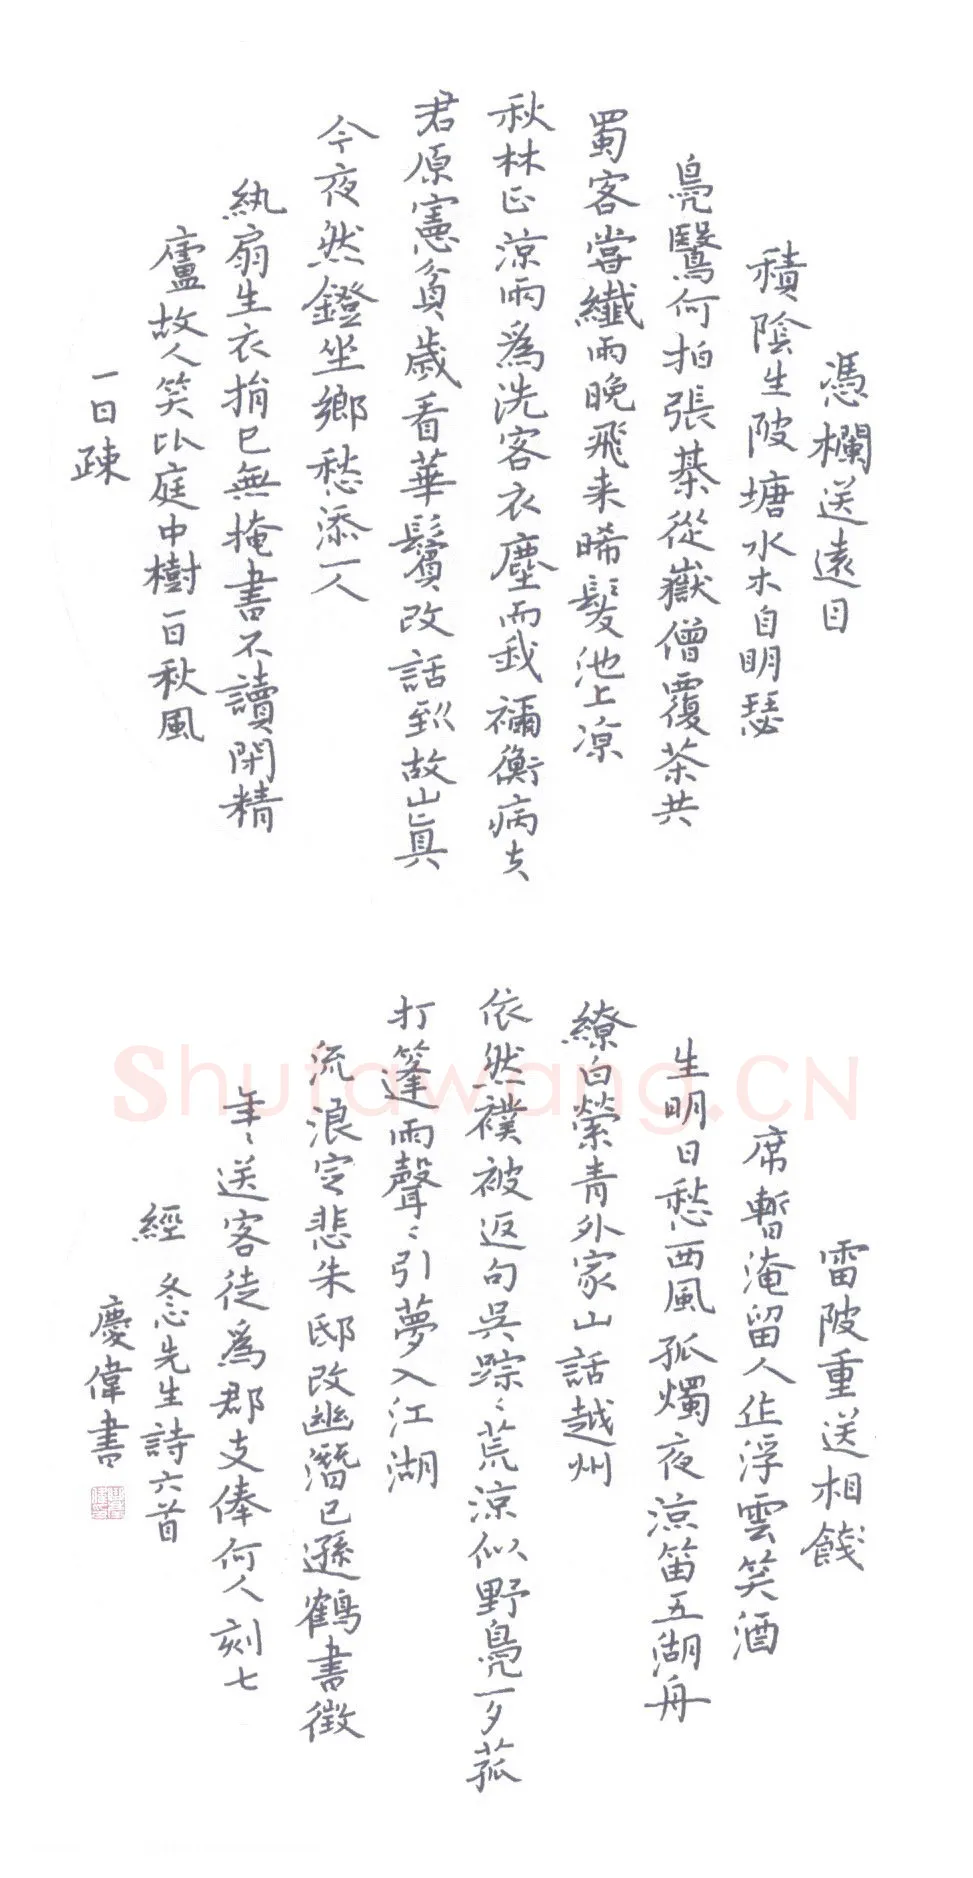 憑欄送遠目
積陰生陂塘水木自明瑟
鳧鷖何拍張棊從嶽僧覆茶共
蜀客嘗纖雨晚飛来晞髮池上涼
秋林正涼雨為洗客衣塵而我禰衡病去
君原憲貧歲看華鬢改話到故山真
今夜然鐙坐鄉愁添一人
紈扇生衣捐已無掩書不讀閉精
廬故人笑比庭中樹一日秋風
一日疎
雷陂重送相餞
席暫淹留人作浮雲笑酒
生明日愁西風孤燭夜涼笛五湖舟
繚白縈青外家山話越州
依然襆被返句吳踪〻荒涼似野鳧一夕菰
打篷雨聲〻引夢入江湖
流浪定悲朱邸改幽潛已遜鶴書徵
年〻送客徒為郡支俸何人刻七
經 冬心先生詩六首
慶偉書
Shufawang.CN